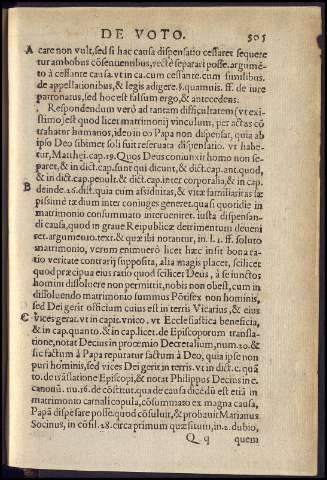 DE VOTO. 505
A care non vult, sed si hac causa dispensatio cessaret sequere
tur ambobus cōsentientibus, rectè separari posse. argumē-
to à cessante causa. vt in ca. cum cessante. cum similibus.
de appellationibus, & legis adigere. §. quamuis. ff. de iure
patronatus, sed hoc est falsum ergo, & antecedens.
Respondendum verò ad tantam difficultatem (vt exi-
stimo) est quod licet matrimonij vinculum, per actus cō
trahatur humanos, ideo in eo Papa non dispensat, quia ab
ipso Deo sibimet soli fuit reseruata dispensatio. vt habe-
tur, Matthęi. cap. 19. Quos Deus coniunxit homo non se-
paret, & in dict. cap. sunt qui dicunt, & dict. cap. ant. quod,
& in dict. cap. penult. & dict. cap. inter corporalia, & in cap.
B deinde. 26. dist. quia cum assiduitas, & vitæ familiaritas sæ
pissimè tædium inter coniuges generet. quasi quotidie in
matrimonio consummato interueniret. iusta dispensan-
di causa, quod in graue Reipublicæ detrimentum deueni
ret. argumento. text. & quæ ibi notantur, in. l. 1. ff. soluto
matrimonio, verùm enimuerò licet hæc insit bona ra-
tio veritate contrarij supposita, alia magis placet, scilicet
quod præcipua eius ratio quod scilicet Deus, à se iunctos
homini dissoluere non permittit, nobis non obest, cum in
dissoluendo matrimonio summus Pōtifex non hominis,
sed Dei gerit officium cuius est in terris Vicarius, & eius
C vices gerat. vt in capit. vnico. vt Ecclesiastica beneficia,
& in cap. quanto. & in cap. licet. de Episcoporum transla-
tione, notat Decius in proœmio Decretalium, num. 20. &
sic factum à Papa reputatur factum à Deo, quia ipse non
puri hominis, sed vices Dei gerit in terris. vt in dict. c. quā
to. de trāslatione Episcopi, & notat Philippus Decius in c.
canonū. nu. 16. de cōstitut. qua de causa dicēdū est etiā in
matrimonio carnali copula, cōsummato ex magna causa,
Papā dispēsare posse. quod cōsuluit, & probauit Marianus
Socinus, in cōsil. 28. circa primum quæsitum, in. 2. dubio,
Q q quem